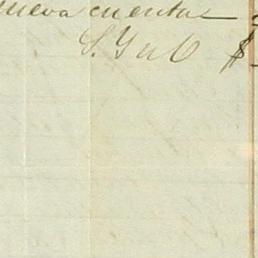 nueva cuenta
S. Y u O $